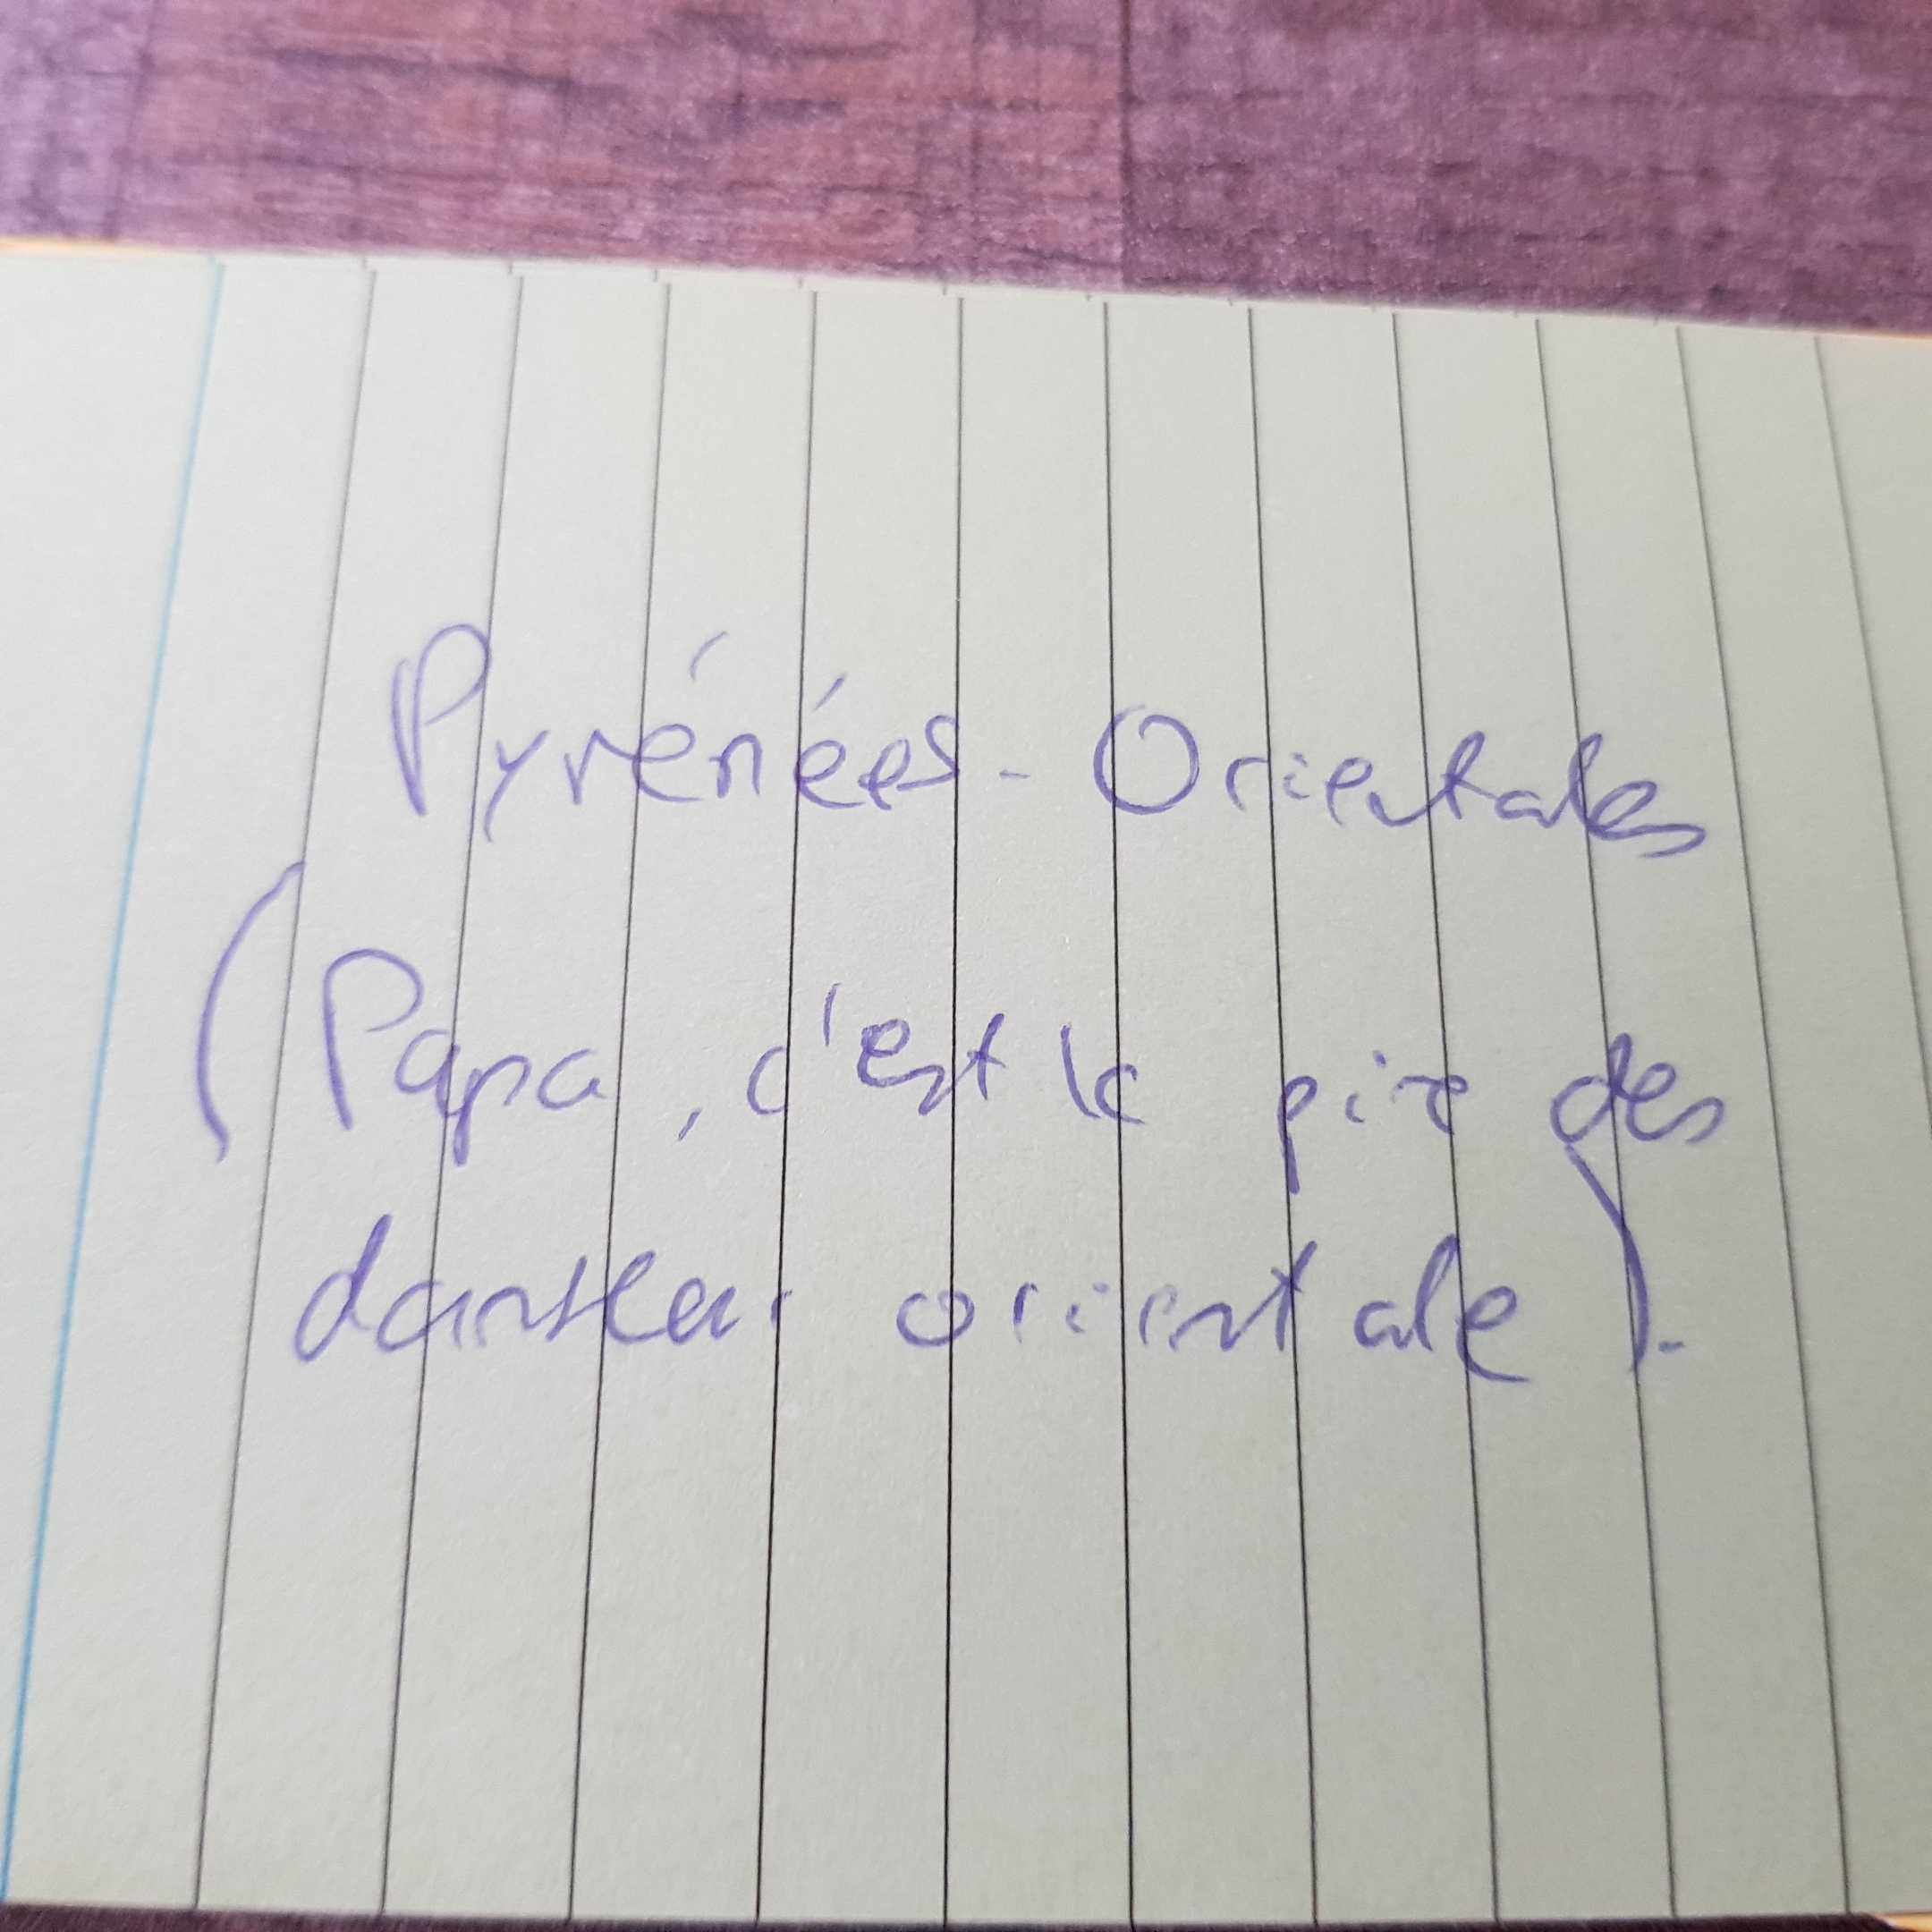 Pyrénées - Orientales
(Papa, c'est le pire des
danseur orientale).